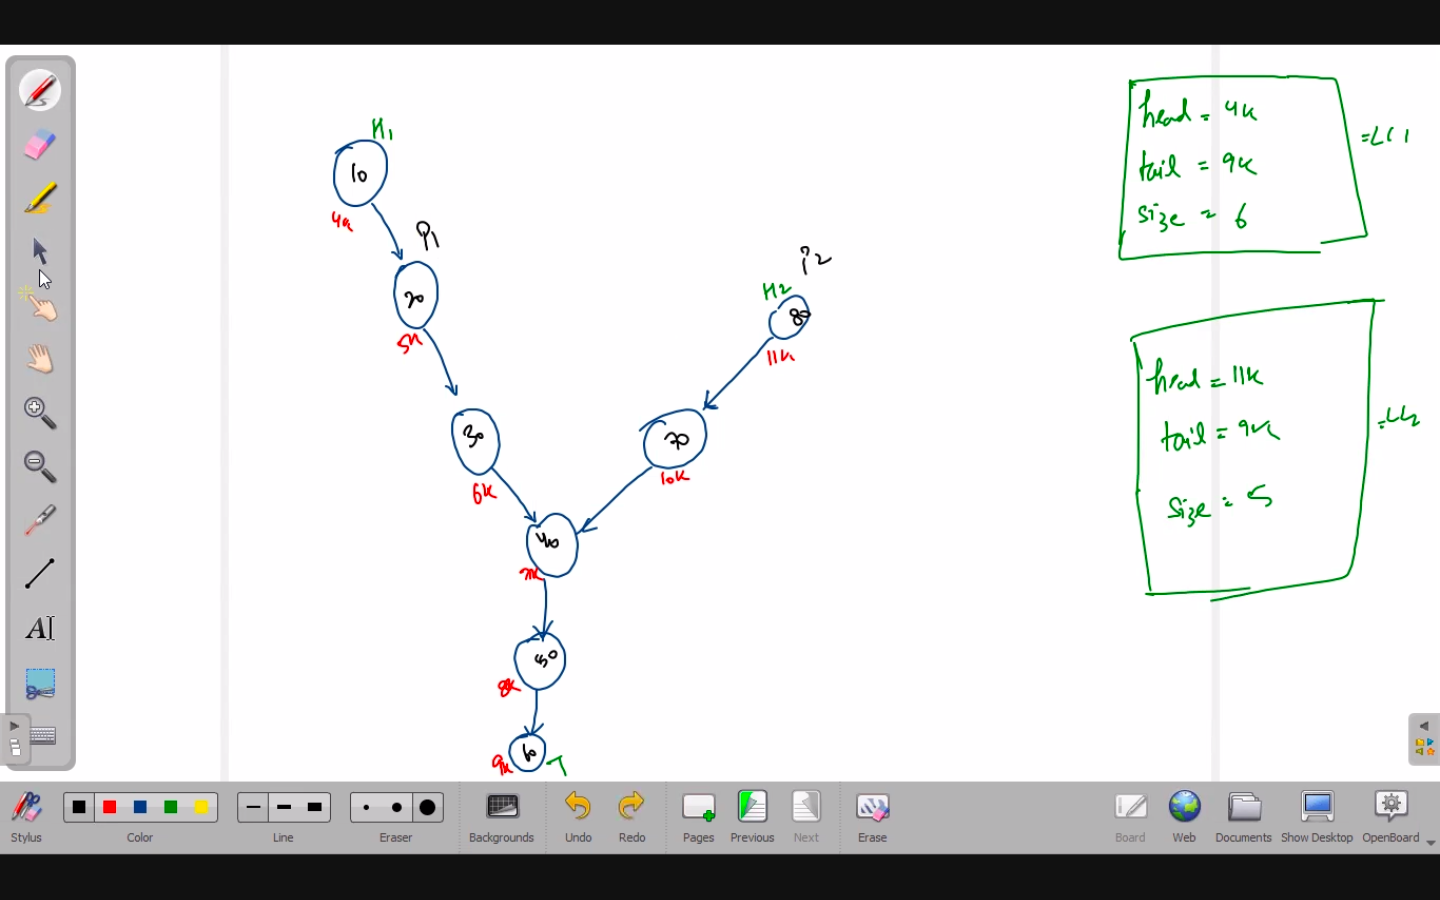 H1
10
4k
P1
20
5k
30
6k
i2
H2
80
11k
70
10k
40
7k
50
8k
60
9k
T
head = 4k
tail = 9k
size = 6
=LL1
head = 11k
tail = 9k
size = 5
=LL2
A
Stylus
Color
Line
Eraser
Backgrounds
Undo
Redo
Pages
Previous
Next
Erase
Board
Web
Documents
Show Desktop
OpenBoard